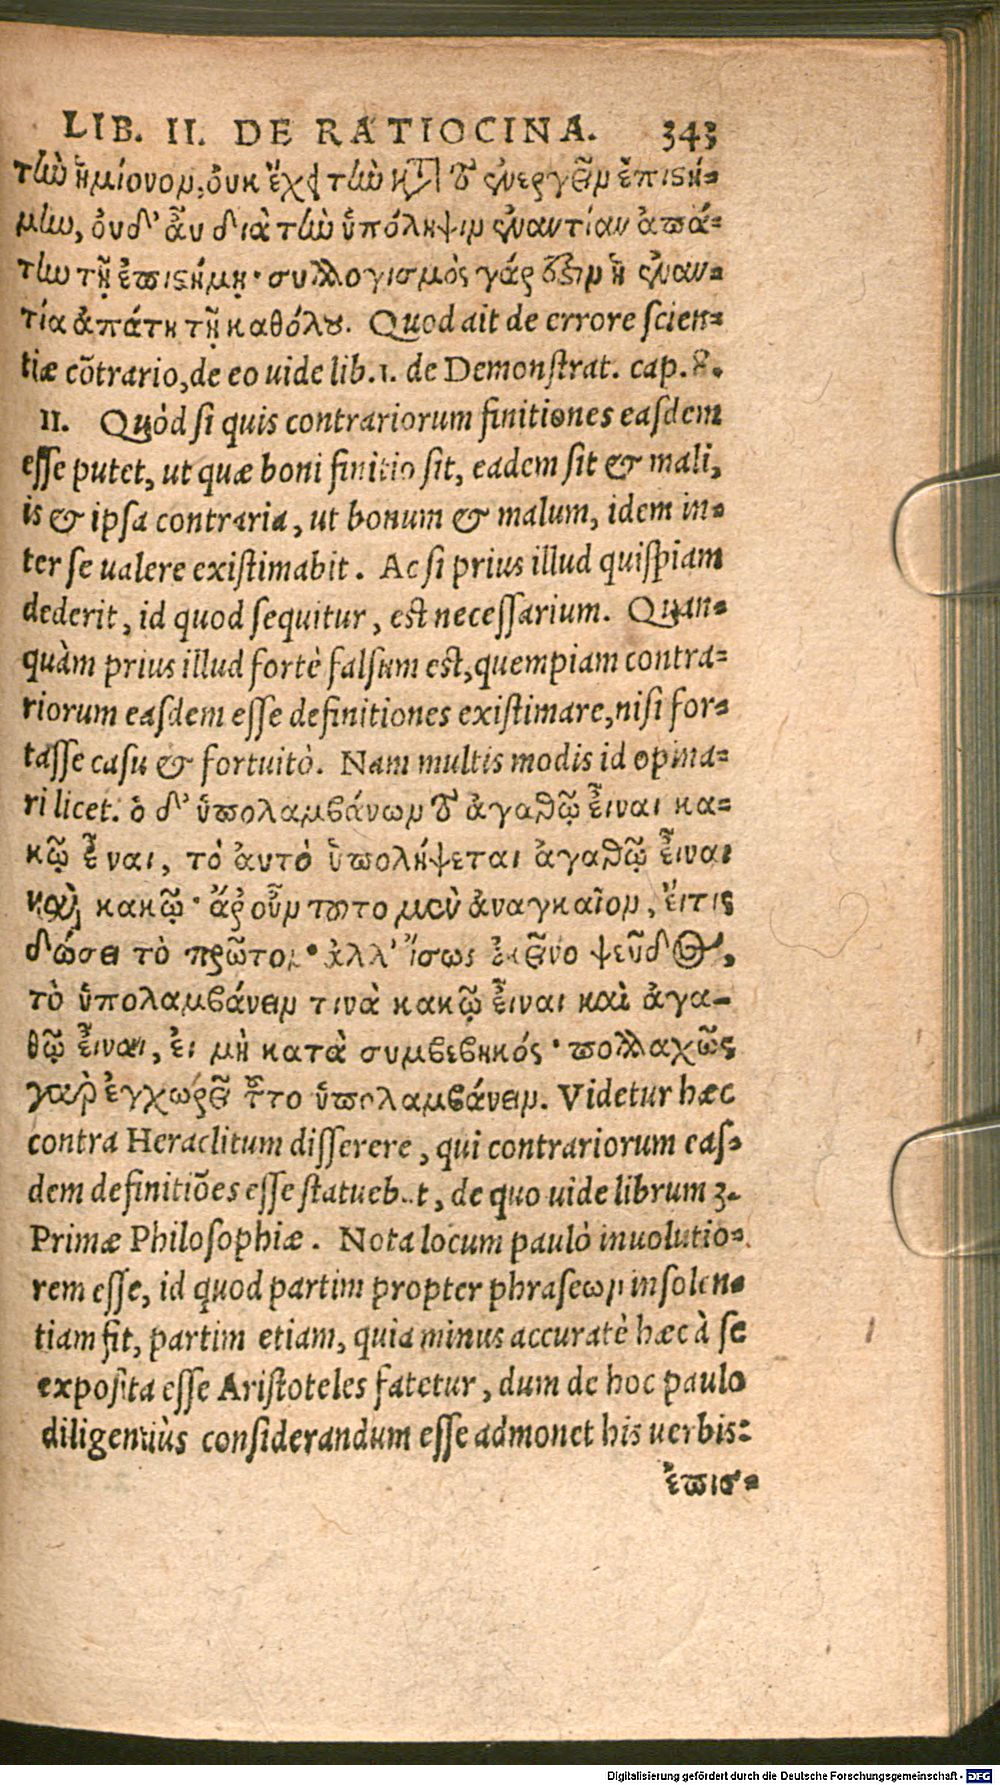 LIB. II. DE RATIOCINA. 343
τὼ ἡμίονον, οὐκ ἔχει τὼ κατὰ τὸ ἐνεργεῖν ἐπιστή-
μην, οὐδ' ἂν διὰ τὼ ὑπόληψιν ἐναντίαν ἀπά-
την τῇ ἐπιστήμῃ· συλλογισμὸς γάρ ἐστιν ἡ ἐναν-
τία ἀπάτη τῇ καθόλου. Quod ait de errore scien-
tiæ cõtrario, de eo uide lib. 1. de Demonstrat. cap. 8.
II. Quòd si quis contrariorum finitiones easdem
esse putet, ut quæ boni finitio sit, eadem sit & mali,
is & ipsa contraria, ut bonum & malum, idem in-
ter se ualere existimabit. Ac si prius illud quispiam
dederit, id quod sequitur, est necessarium. Quan-
quàm prius illud fortè falsum est, quempiam contra-
riorum easdem esse definitiones existimare, nisi for-
tasse casu & fortuitò. Nam multis modis id opina-
ri licet. ὁ δ' ὑπολαμβάνων τὸ ἀγαθῷ εἶναι κα-
κῷ εἶναι, τὸ ἀυτὸ ὑπολήψεται ἀγαθῷ εἶναι
καὶ κακῷ· ἆρ οὖν τοῦτο μὲν ἀναγκαῖον, ἔιτις
δώσει τὸ πρῶτον· ἀλλ' ἴσως ἐκεῖνο ψεῦδος,
τὸ ὑπολαμβάνειν τινὰ κακῷ εἶναι καὶ ἀγα-
θῷ εἶναι, ἐι μὴ κατὰ συμβεβηκός· πολλαχῶς
γὰρ ἐγχωρεῖ τοῦτο ὑπολαμβάνειν. Videtur hæc
contra Heraclitum disserere, qui contrariorum eas-
dem definitiões esse statueb..t, de quo uide librum 3.
Primæ Philosophiæ. Nota locum paulò inuolutio-
rem esse, id quod partim propter phraseων insolen-
tiam fit, partim etiam, quia minus accuratè hæc à se
exposita esse Aristoteles fatetur, dum de hoc paulo
diligentiùs considerandum esse admonet his uerbis:
ἐπισ-
Digitalisierung gefördert durch die Deutsche Forschungsgemeinschaft - DFG